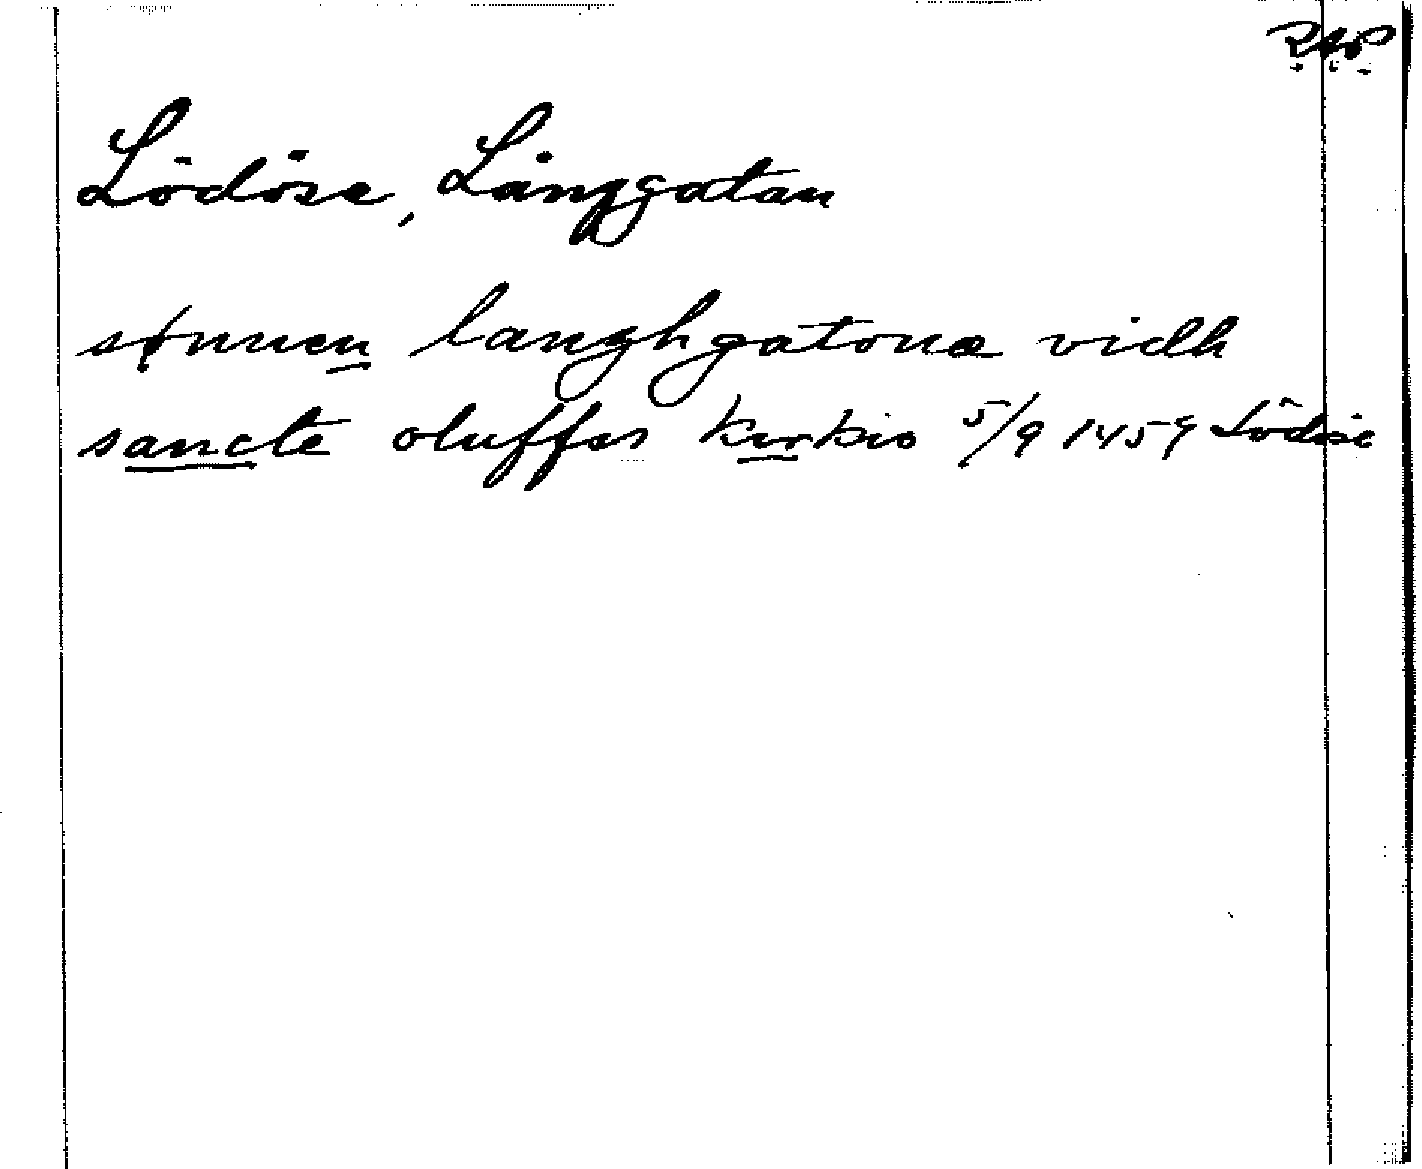 RAP
Lödöse, Långgatan
sønnen langhgatona vidh
sancte oluffs kirkio 5/9 1459 Lödöse